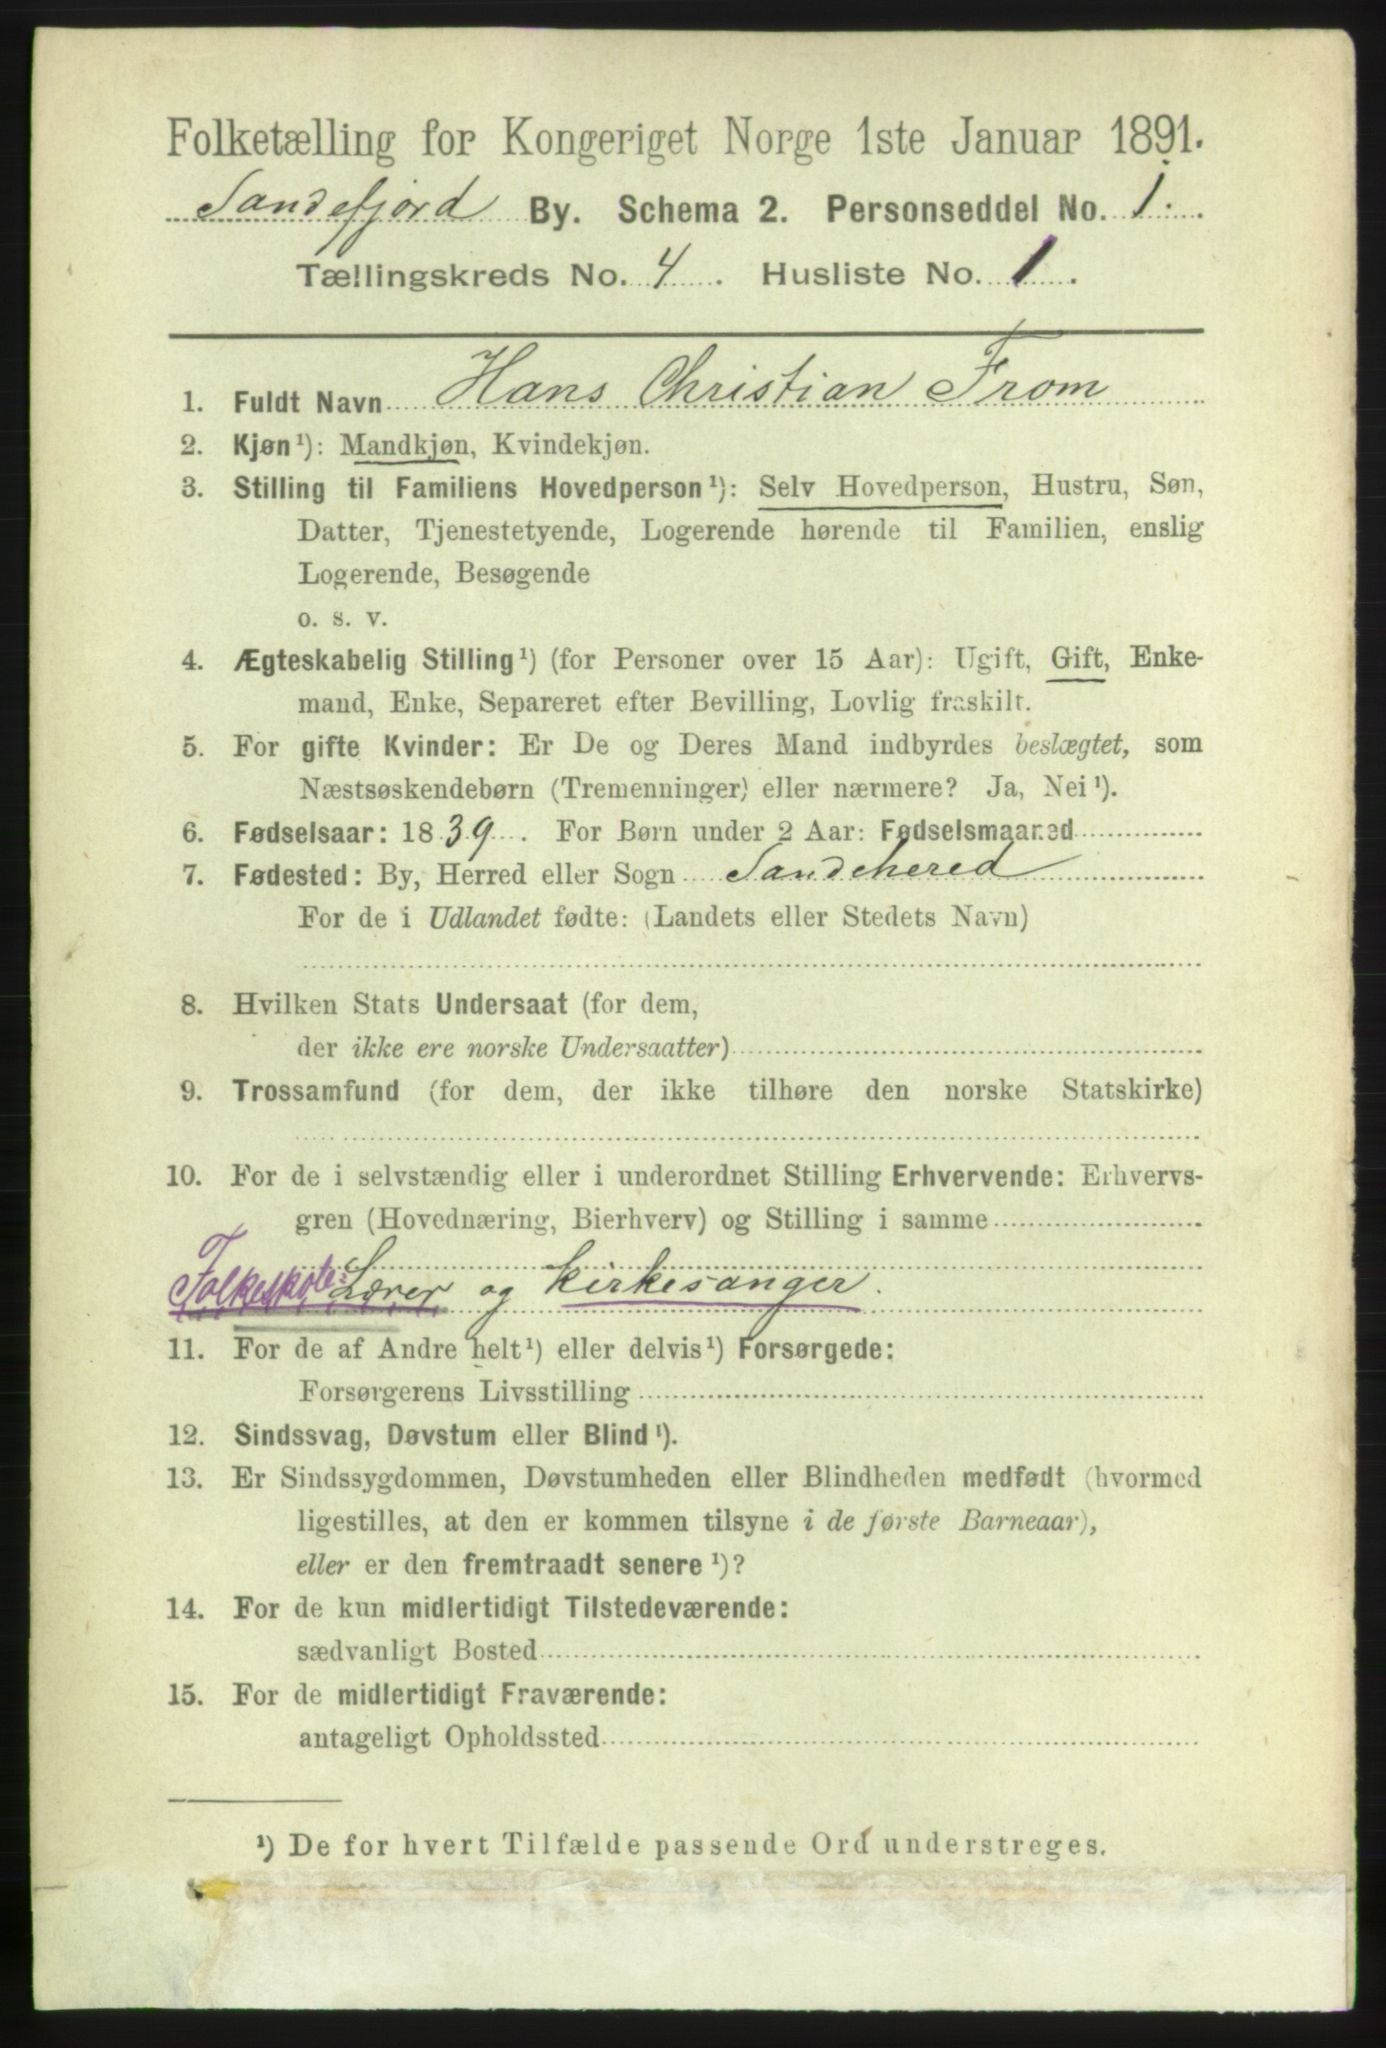 Folketælling for Kongeriget Norge 1ste Januar 1891.
Sandefjord By. Schema 2. Personseddel No. 1.
Tællingskreds No. 4. Husliste No. 1.
1. Fuldt Navn Hans Christian From
2. Kjøn¹): Mandkjøn, Kvindekjøn.
3. Stilling til Familiens Hovedperson¹): Selv Hovedperson, Hustru, Søn,
Datter, Tjenestetyende, Logerende hørende til Familien, enslig
Logerende, Besøgende
o. s. v.
4. Ægteskabelig Stilling¹) (for Personer over 15 Aar): Ugift, Gift, Enke-
mand, Enke, Separeret efter Bevilling, Lovlig fraskilt.
5. For gifte Kvinder: Er De og Deres Mand indbyrdes beslægtet, som
Næstsøskendebørn (Tremenninger) eller nærmere? Ja, Nei¹).
6. Fødselsaar: 1839. For Børn under 2 Aar: Fødselsmaaned
7. Fødested: By, Herred eller Sogn Sandehered
For de i Udlandet fødte: (Landets eller Stedets Navn)
8. Hvilken Stats Undersaat (for dem,
der ikke ere norske Undersaatter)
9. Trossamfund (for dem, der ikke tilhøre den norske Statskirke)
10. For de i selvstændig eller i underordnet Stilling Erhvervende: Erhvervs-
gren (Hovednæring, Bierhverv) og Stilling i samme
Folkeskole: Lærer og Kirkesanger.
11. For de af Andre helt¹) eller delvis¹) Forsørgede:
Forsørgerens Livsstilling
12. Sindssvag, Døvstum eller Blind¹).
13. Er Sindssygdommen, Døvstumheden eller Blindheden medfødt (hvormed
ligestilles, at den er kommen tilsyne i de første Barneaar),
eller er den fremtraadt senere¹)?
14. For de kun midlertidigt Tilstedeværende:
sædvanligt Bosted
15. For de midlertidigt Fraværende:
antageligt Opholdssted
¹) De for hvert Tilfælde passende Ord understreges.